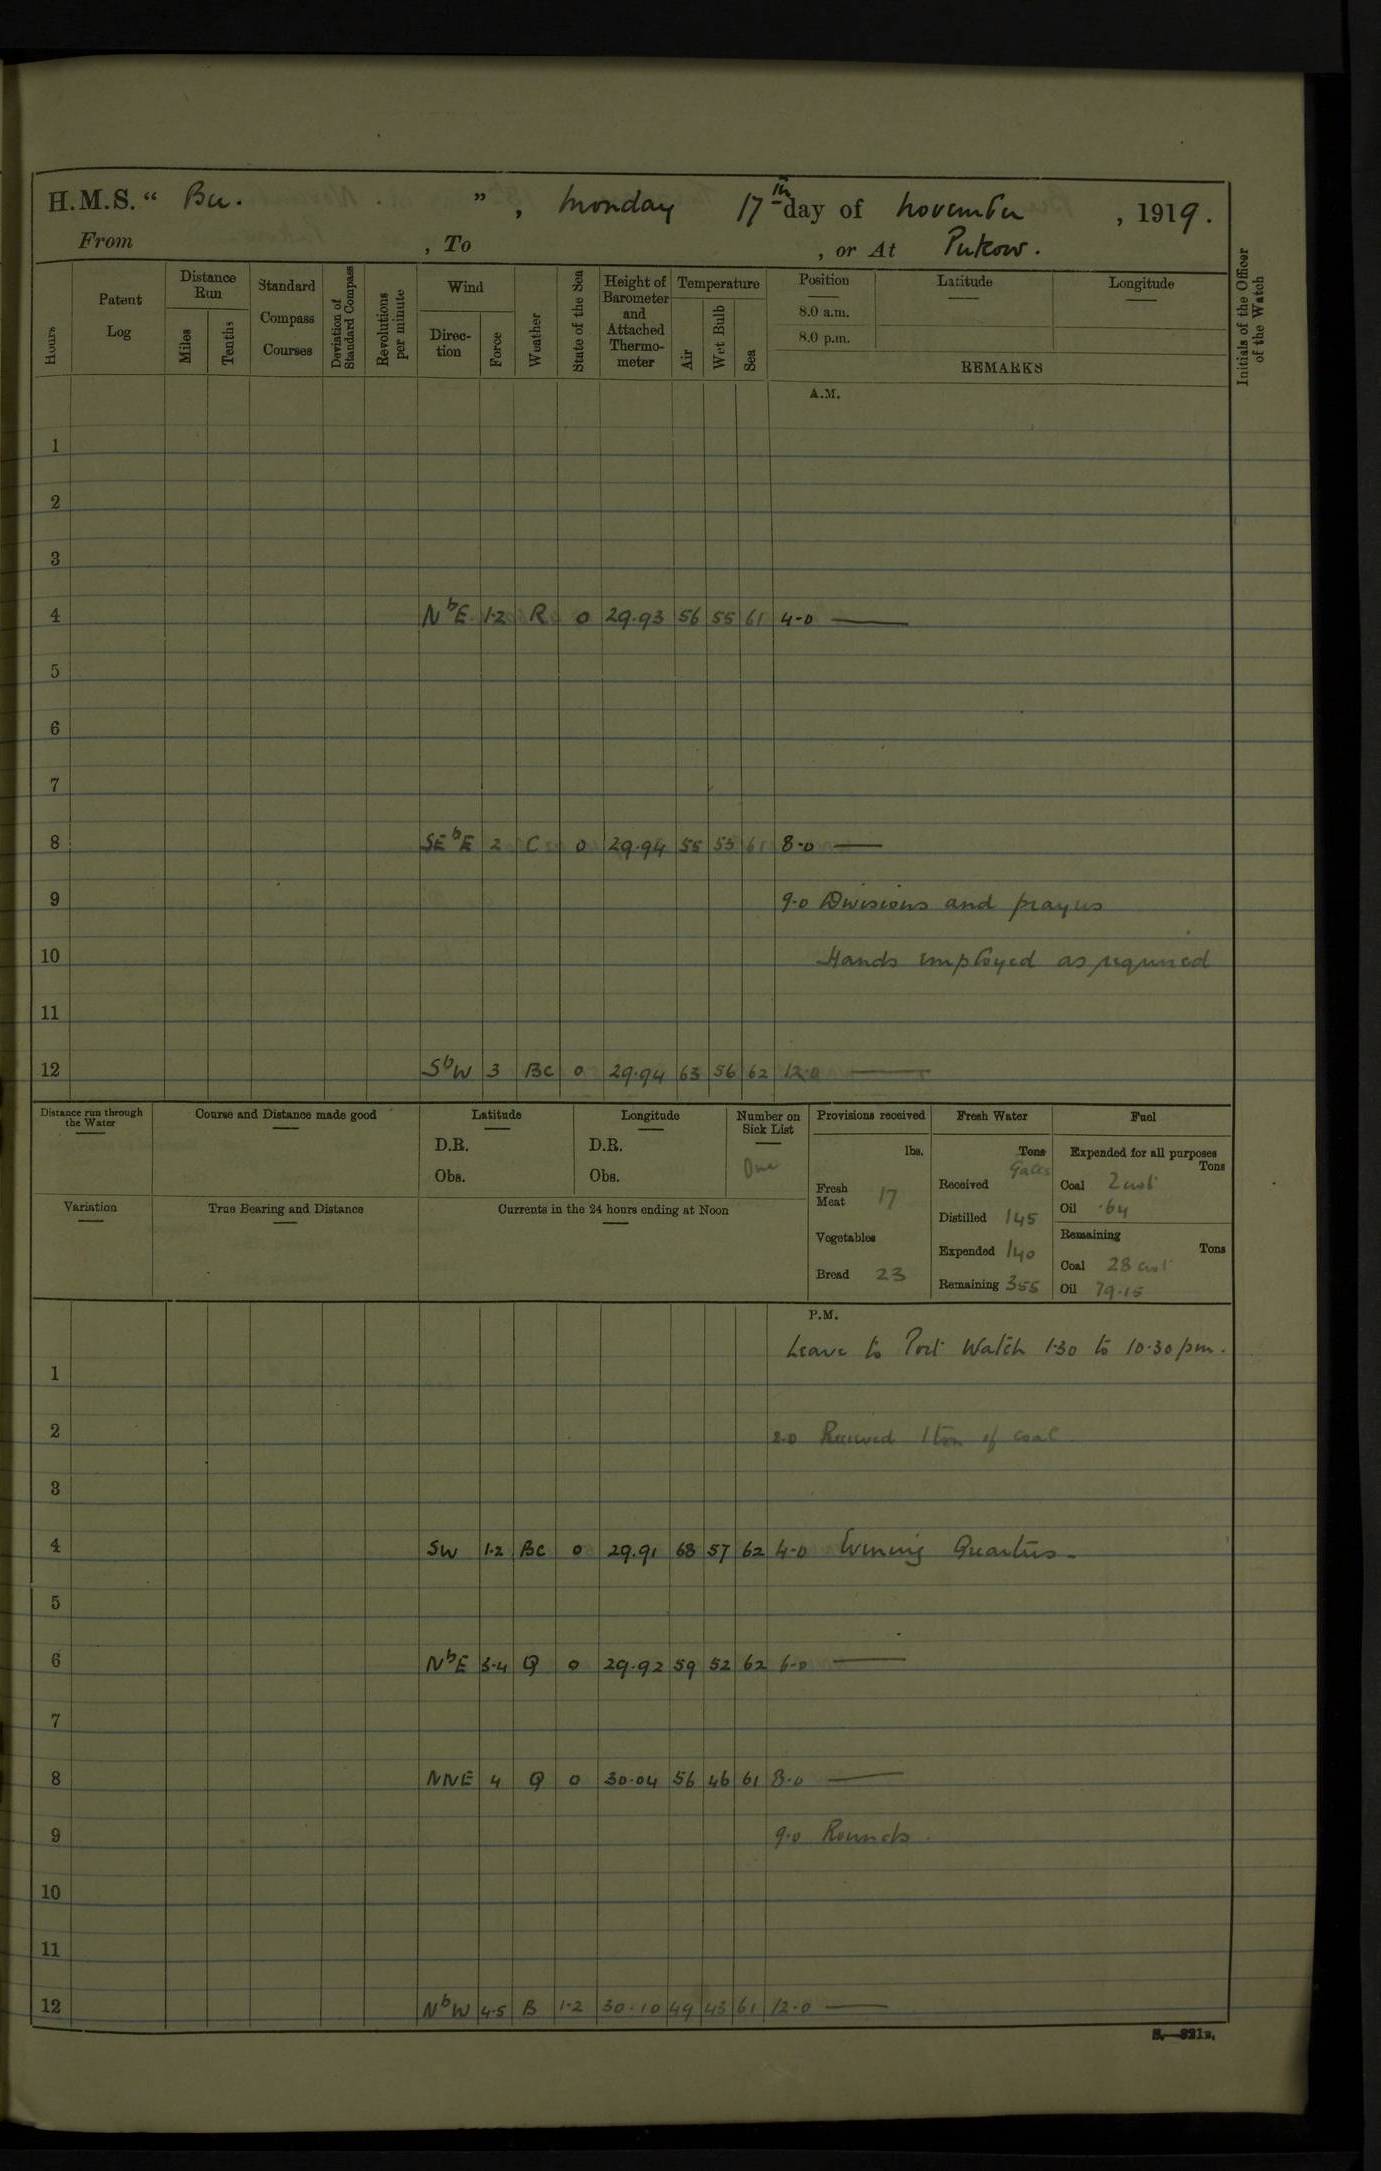 H.M.S. “ Bee. ” , Monday 17th day of November , 1919.
From , To , or At Pukow.
Hours
Patent Log
Distance Run
Miles
Tenths
Standard Compass Courses
Deviation of Standard Compass
Revolutions per minute
Wind
Direc-tion
Force
Weather
State of the Sea
Height of Barometer and Attached Thermo-meter
Temperature
Air
Wet Bulb
Sea
Position
8.0 a.m.
8.0 p.m.
Latitude
Longitude
REMARKS
Initials of the Officer of the Watch
A.M.
1
2
3
4 NbE 1·2 R 0 29.93 56 55 61 4-0 —
5
6
7
8 SEbE 2 C 0 29.94 55 53 61 8-0 —
9 9-0 Divisions and prayers
10 Hands employed as required
11
12 SbW 3 BC 0 29.94 63 56 62 12.0 —
Distance run through the Water
Course and Distance made good
Latitude
D.R.
Obs.
Longitude
D.R.
Obs.
Number on Sick List
One
Variation
True Bearing and Distance
Currents in the 24 hours ending at Noon
Provisions received
lbs.
Fresh Meat 17
Vegetables
Bread 23
Fresh Water
Tons
Galls
Received
Distilled 145
Expended 140
Remaining 355
Fuel
Expended for all purposes
Tons
Coal 2 cwt
Oil .64
Remaining
Tons
Coal 28 cwt
Oil 79.15
P.M.
Leave to Port Watch 1.30 to 10.30 pm.
1
2 2.0 Received 1 ton of coal
3
4 SW 1·2 BC 0 29.91 68 57 62 4-0 Evening Quarters.
5
6 NbE 3·4 Q 0 29.92 59 52 62 6-0 —
7
8 NNE 4 Q 0 30.04 56 46 61 8.0 —
9 9.0 Rounds.
10
11
12 NbW 4·5 B 1·2 30.10 49 43 61 12.0 —
S.—321B.